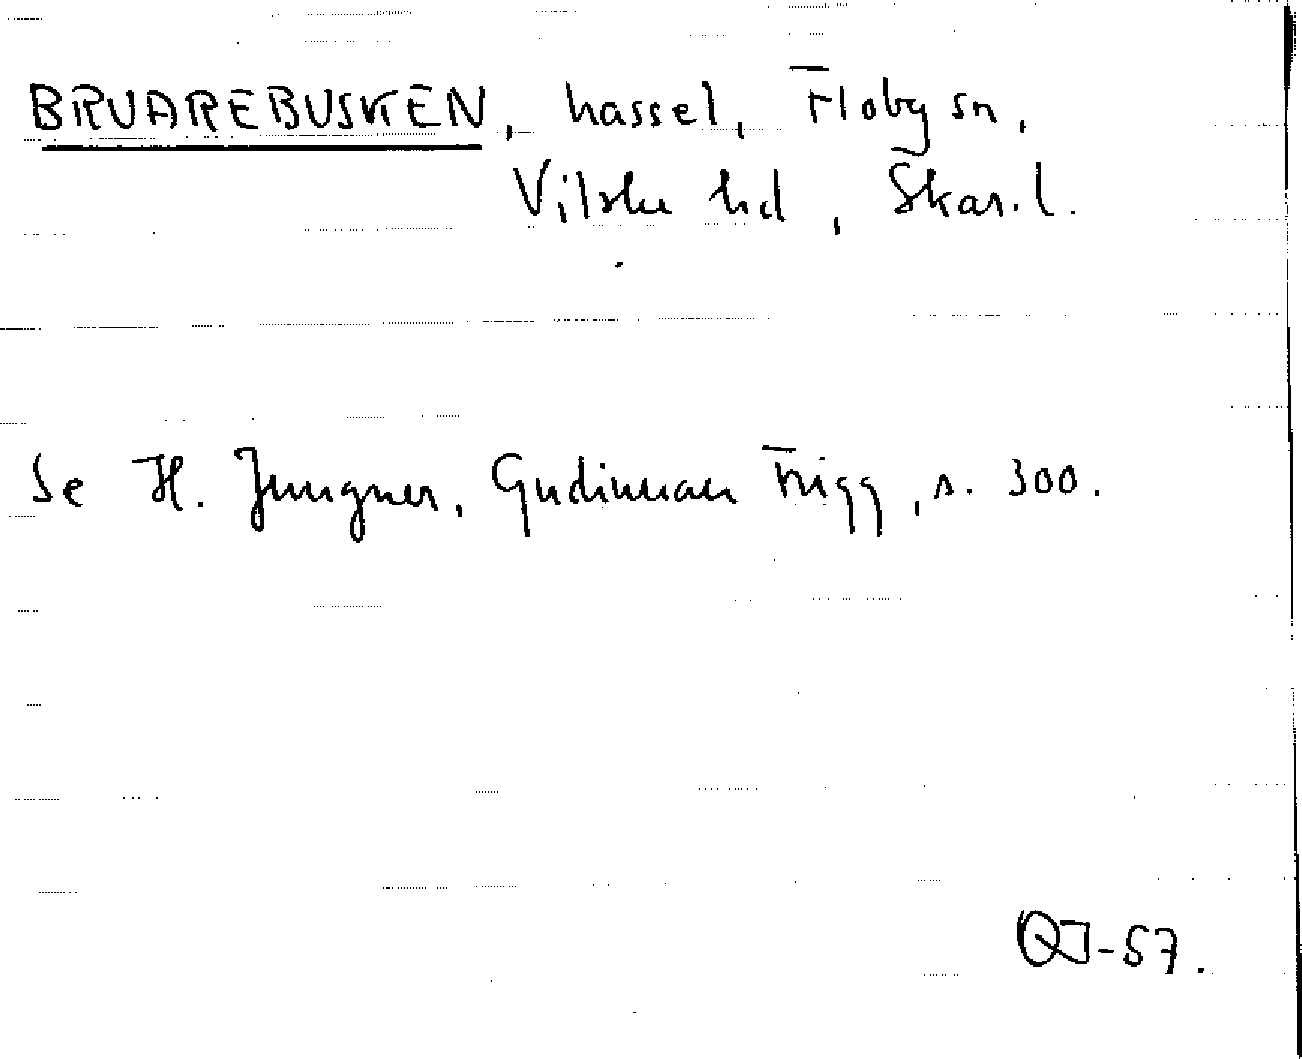 BRUAREBUSKEN, hassel, Floby sn,
Vilske hd, Skar.l.
Se H. Jungner, Gudinnan Frigg, s. 300.
-57.